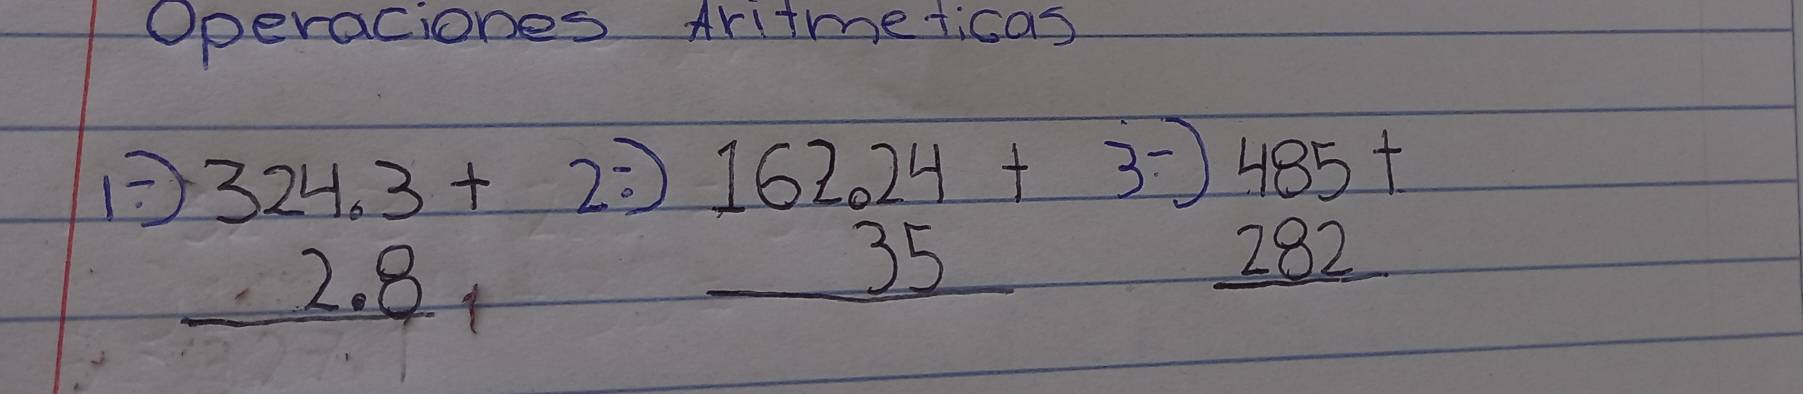 Operaciones Aritmeticas
1÷) 324.3 + 2÷) 162.24 + 3÷) 485 +
2.8 35 282